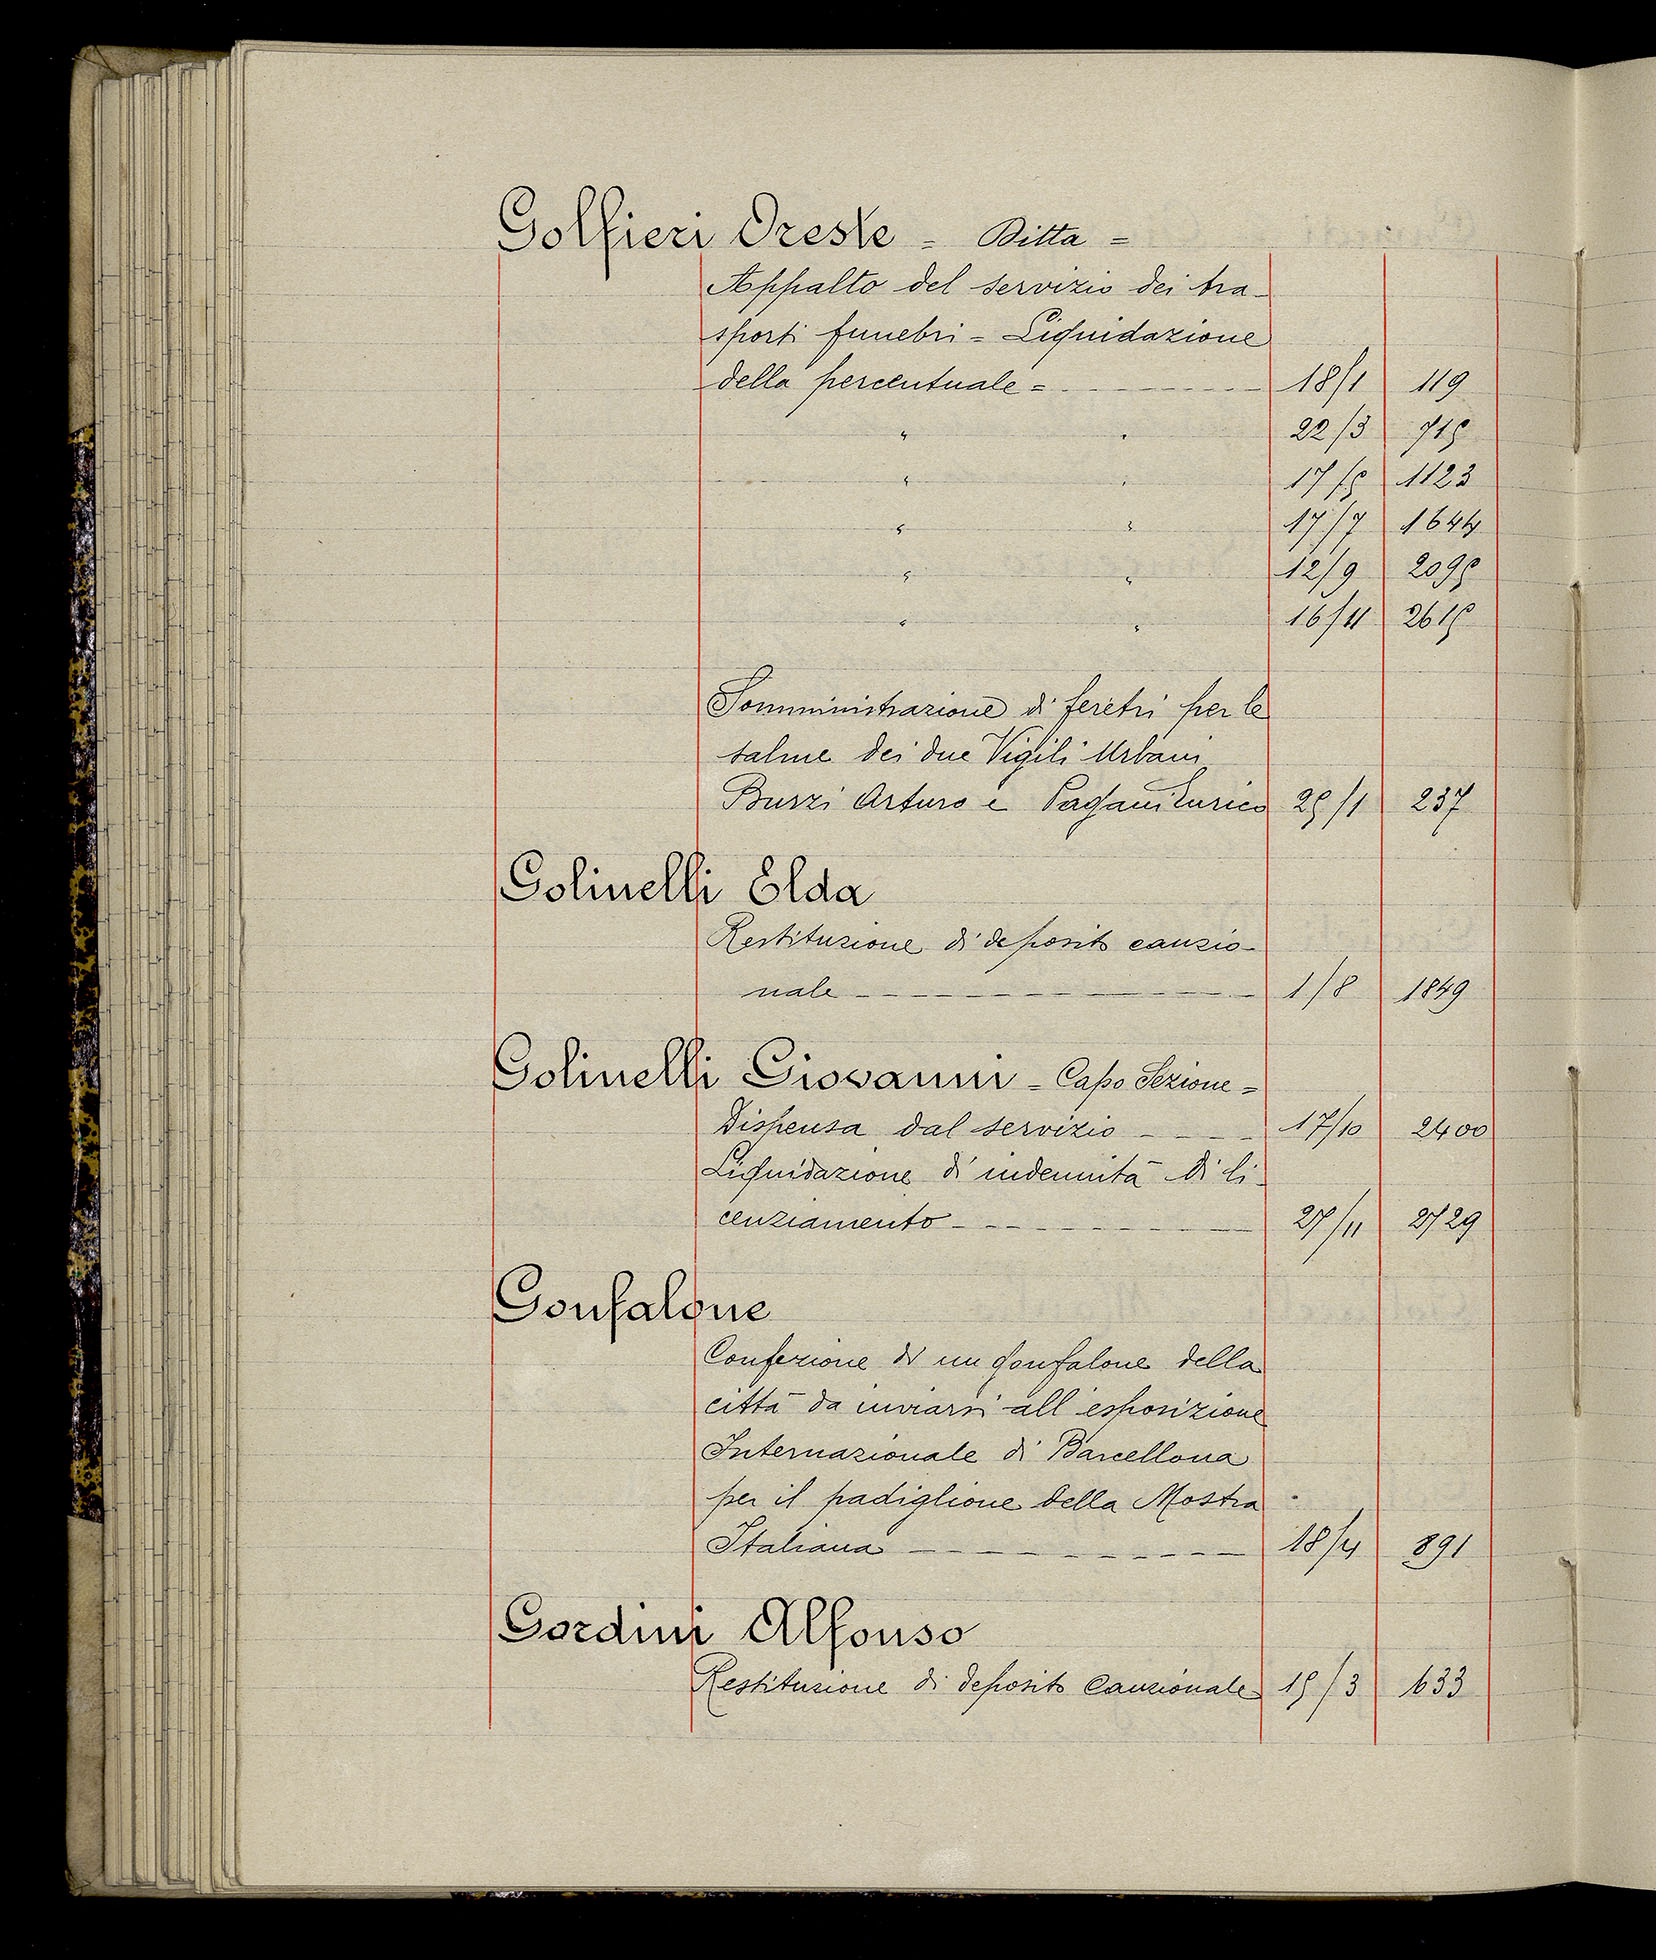 Golfieri Oreste = Ditta =
Appalto del servizio dei tra-
sporti funebri = Liquidazione
della percentuale = 18/1 119
" " 22/3 715
" " 17/5 1123
" " 17/7 1644
" " 12/9 2095
" " 16/11 2615
Somministrazione di feretri per le
salme dei due Vigili Urbani
Burzi Arturo e Pagani Enrico 25/1 237
Golinelli Elda
Restituzione di deposito cauzio-
nale 1/8 1849
Golinelli Giovanni = Capo Sezione =
Dispensa dal servizio 17/10 2400
Liquidazione di indennità di li-
cenziamento 27/11 2729
Gonfalone
Confezione di un gonfalone della
città da inviarsi all'esposizione
Internazionale di Barcellona
per il padiglione della Mostra
Italiana 18/4 891
Gordini Alfonso
Restituzione di deposito Cauzionale 15/3 633